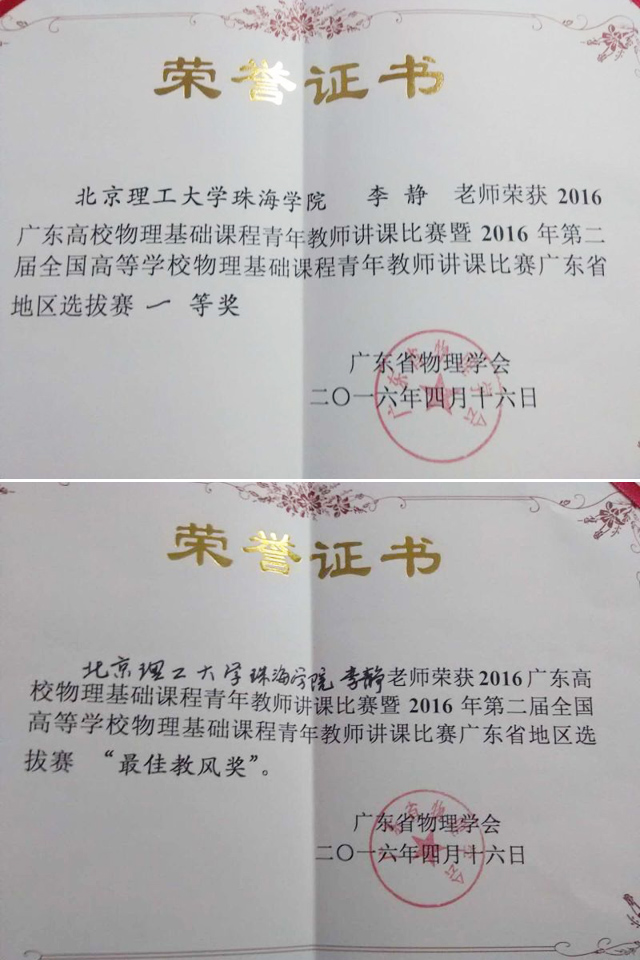 荣誉证书
北京理工大学珠海学院 李静 老师荣获 2016
广东高校物理基础课程青年教师讲课比赛暨 2016 年第二
届全国高等学校物理基础课程青年教师讲课比赛广东省
地区选拔赛 一 等奖
广东省物理学会
二〇一六年四月十六日
广东省物理学会
荣誉证书
北京理工大学珠海学院李静老师荣获 2016 广东高
校物理基础课程青年教师讲课比赛暨 2016 年第二届全国
高等学校物理基础课程青年教师讲课比赛广东省地区选
拔赛 “最佳教风奖”。
广东省物理学会
二〇一六年四月十六日
广东省物理学会